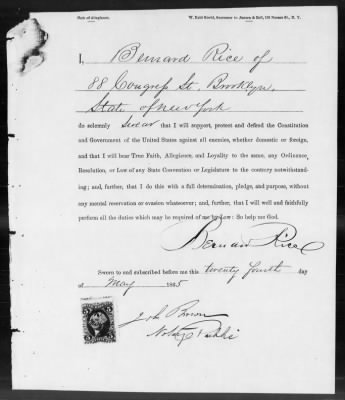 Oath of Allegiance.
W. Reid Gould, Successor to Jansen & Bell, 158 Nassau St., N. Y.
I, Bernard Rice of
88 Congress St, Brooklyn,
State of New York
do solemnly swear that I will support, protect and defend the Constitution
and Government of the United States against all enemies, whether domestic or foreign,
and that I will bear True Faith, Allegiance, and Loyalty to the same, any Ordinance,
Resolution, or Law of any State Convention or Legislature to the contrary notwithstand-
ing; and, further, that I do this with a full determination, pledge, and purpose, without
any mental reservation or evasion whatsoever; and, further, that I will well and faithfully
perform all the duties which may be required of me by Law: So help me God.
Bernard Rice
Sworn to and subscribed before me this twenty fourth day
of May 1865
Brown
Notary Public